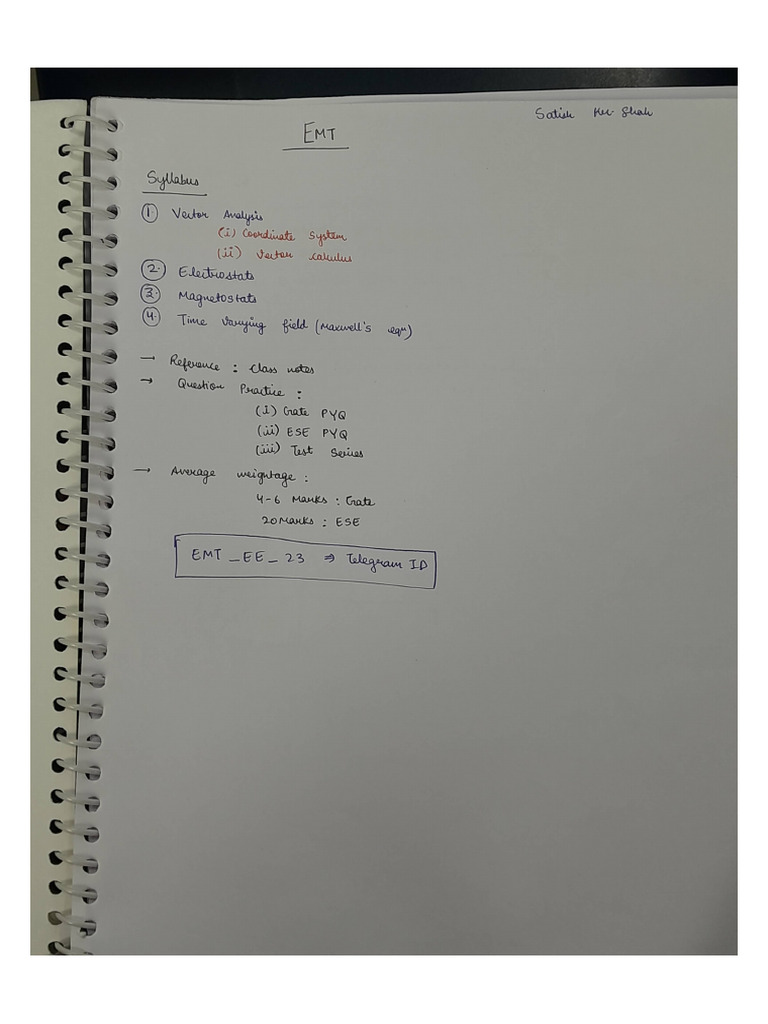 Satish Kr. Shah
EMT
Syllabus
1. Vector Analysis
(i) Coordinate System
(ii) Vector Calculus
2. Electrostats
3. Magnetostats
4. Time Varying field (Maxwell's eqn)
→ Reference : Class notes
→ Question Practice :
(i) Gate PYQ
(ii) ESE PYQ
(iii) Test Series
→ Average weightage :
4-6 Marks : Gate
20 Marks : ESE
EMT_EE_23 ⇒ Telegram ID